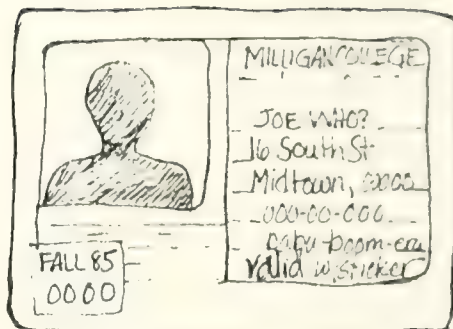 MILLIGAN COLLEGE
JOE WHO?
16 South St
Midtown, 00000
000-00-000
baby-boom-era
Valid w. sticker
FALL 85
0000